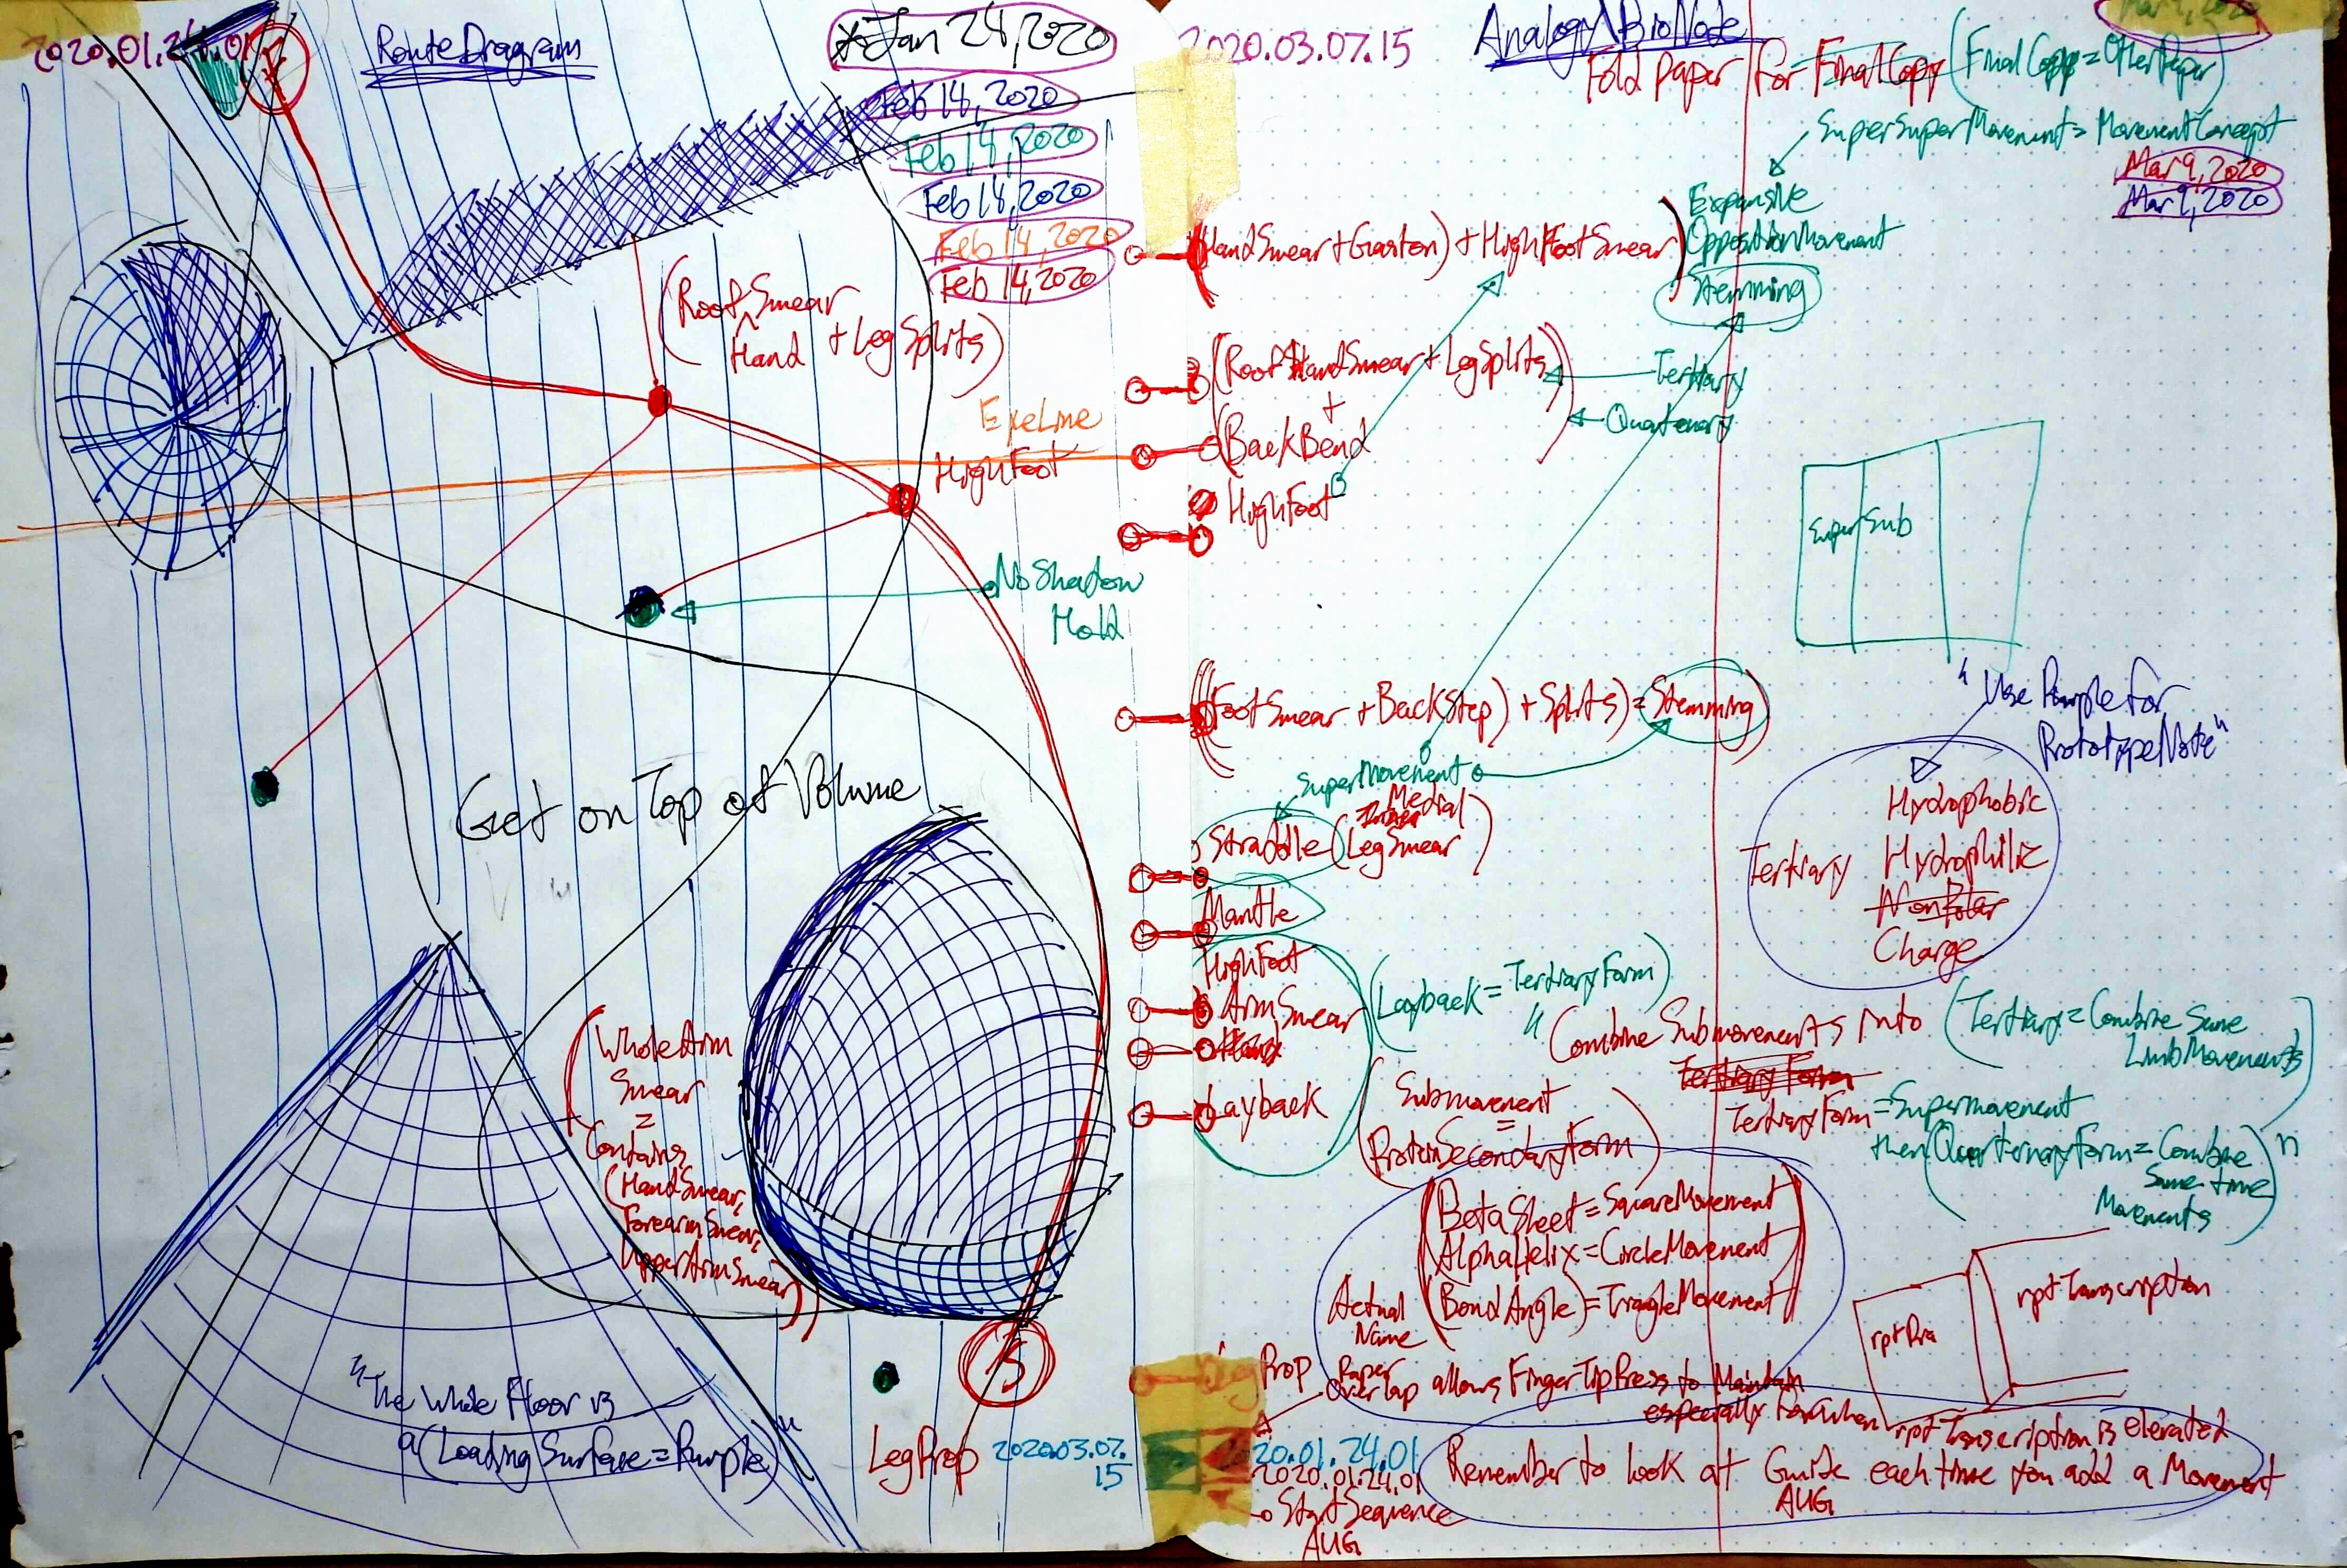 2020.01.24.01
Route Diagram
*Jan 24, 2020
Feb 14, 2020
Feb 14, 2020
Feb 14, 2020
Feb 14, 2020
Feb 14, 2020
(Roof Smear
Hand + Leg Splits)
EyeLine
HighFoot
No Shadow
Hold
Get on Top of Volume
(Whole Arm
Smear
=
Contains
(HandSmear,
ForearmSmear,
UpperArmSmear))
"The Whole Floor is
a (Loading Surface = Purple)"
S
LegProp
2020.03.07.
15
2020.03.07.15
Analogy\BioNode
Mar 9, 2020
Fold Paper For Final Copy (Final Copy = Other Paper)
SuperSuperMovement = MovementConcept
Mar 9, 2020
Mar 9, 2020
Expansive
OppositionMovement
Stemming
(HandSmear + Gaston) + HighFootSmear)
(Roof HandSmear + LegSplits)
+
(BackBend
Tertiary
Quaternary
HighFoot
Super Sub
((FootSmear + BackStep) + Splits) = Stemming)
"Use Purple for
PrototypeNote"
SuperMovement
Medial
Straddle (LegSmear)
Hydrophobic
Tertiary Hydrophilic
NonPolar
Charge
Mantle
HighFoot
ArmSmear
Hand
Layback
(Layback = TertiaryForm)
"Combine Submovements into
Tertiary Form
TertiaryForm = Supermovement
(Tertiary = Combine Same
LimbMovements)
then (QuarternaryForm = Combine
Same time
Movements)"
(Submovement
=
ProteinSecondaryForm)
(BetaSheet = SquareMovement
AlphaHelix = CircleMovement
(BondAngle) = TriangleMovement)
Actual
Name
rptTranscription
LegProp
Paper
Overlap allows FingerTipPress to Maintain
especially
rptTranscription is elevated
20.01.24.01
2020.01.24.01
Start Sequence
AUG
Remember to look at Guide each time you add a Movement
AUG